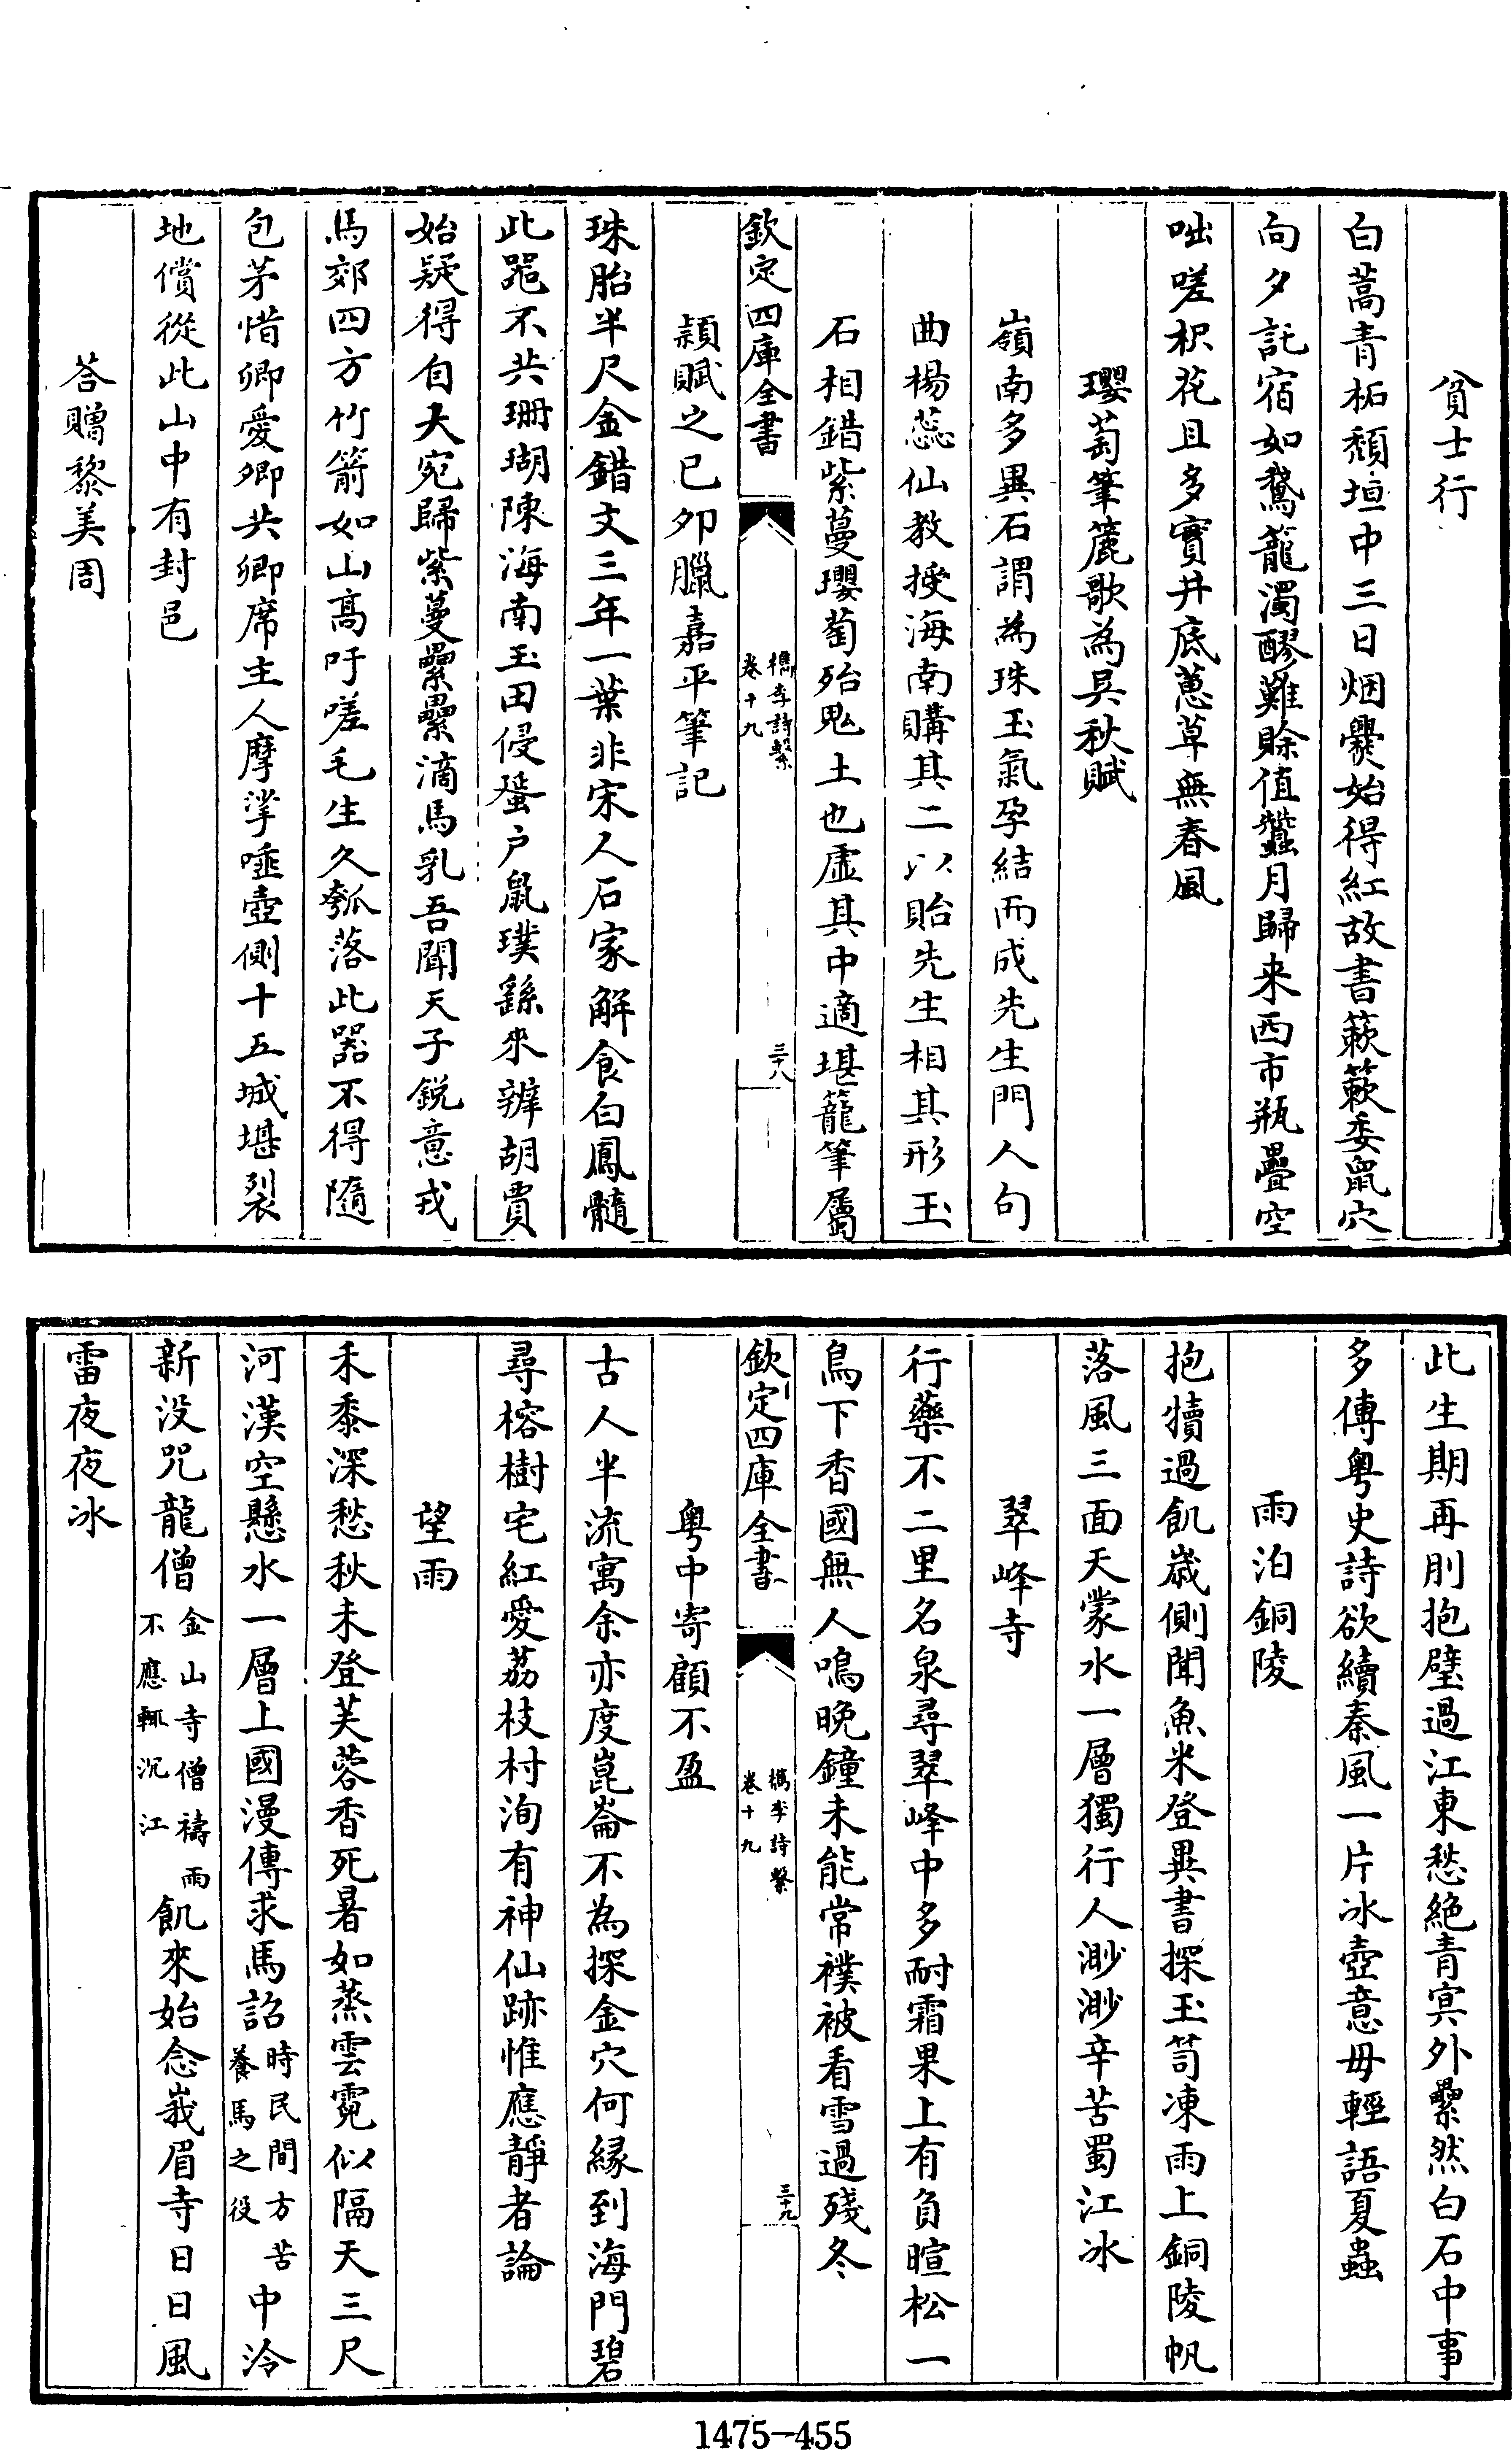 貧士行
白蒿青柘頹垣中三日烟爨始得紅故書蔌蔌委鼠穴
向夕託宿如鵞籠濁醪難賒值蠶月歸来西市瓶罍空
咄嗟枳花且多實井底蔥草無春風
瓔萄筆簏歌為吳秋賦
嶺南多異石謂為珠玉氣孕結而成先生門人句
曲楊蕊仙教授海南購其二以貽先生相其形玉
石相錯紫蔓瓔萄殆鬼土也虛其中適堪籠筆屬
欽定四庫全書
檇李詩繫
卷十九
三十八
頴賦之已夘臘嘉平筆記
珠胎半尺金錯文三年一葉非宋人石家解食白鳳髓
此噐不共珊瑚陳海南玉田侵蜑户鼠璞繇來辨胡賈
始疑得自大宛歸紫蔓纍纍滴馬乳吾聞天子鋭意戎
馬郊四方竹箭如山高吁嗟毛生久瓠落此器不得隨
包茅惜卿愛卿共卿席主人摩挲唾壺側十五城堪裂
地償從此山中有封邑
荅贈黎美周
此生期再刖抱璧過江東愁絕青㝠外纍然白石中事
多傳粤史詩欲續秦風一片冰壺意毋輕語夏蟲
雨泊銅陵
抱犢過飢歲側聞魚米登異書探玉笥凍雨上銅陵帆
落風三面天蒙水一層獨行人渺渺辛苦蜀江冰
翠峰寺
行藥不二里名泉尋翠峰中多耐霜果上有負暄松一
鳥下香國無人鳴晚鐘未能常襆被看雪過殘冬
欽定四庫全書
檇李詩繫
卷十九
三十九
粤中寄顧不盈
古人半流寓余亦度崑崙不為探金穴何緣到海門碧
尋榕樹宅紅愛荔枝村洵有神仙跡惟應靜者論
望雨
禾黍深愁秋未登芙蓉香死暑如蒸雲霓似隔天三尺
河漢空懸水一層上國漫傳求馬詔時民間方苦養馬之役中泠
新没咒龍僧金山寺僧禱雨不應輒沉江飢來始念峩眉寺日日風
雷夜夜冰
1475-455